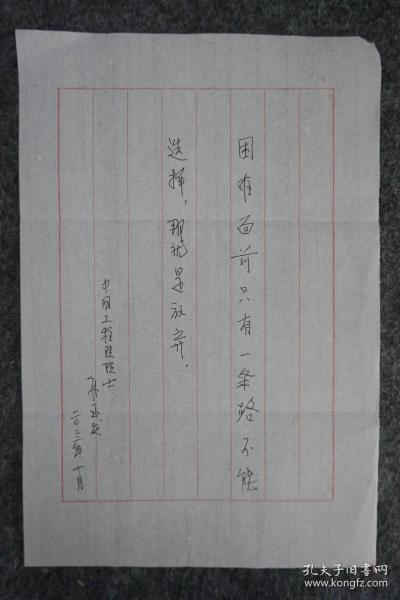 困难面前只有一条路不能
选择，那就是放弃．
中国工程院院士
孙玉发
二〇二二年十月
孔夫子旧书网
www.kongfz.com